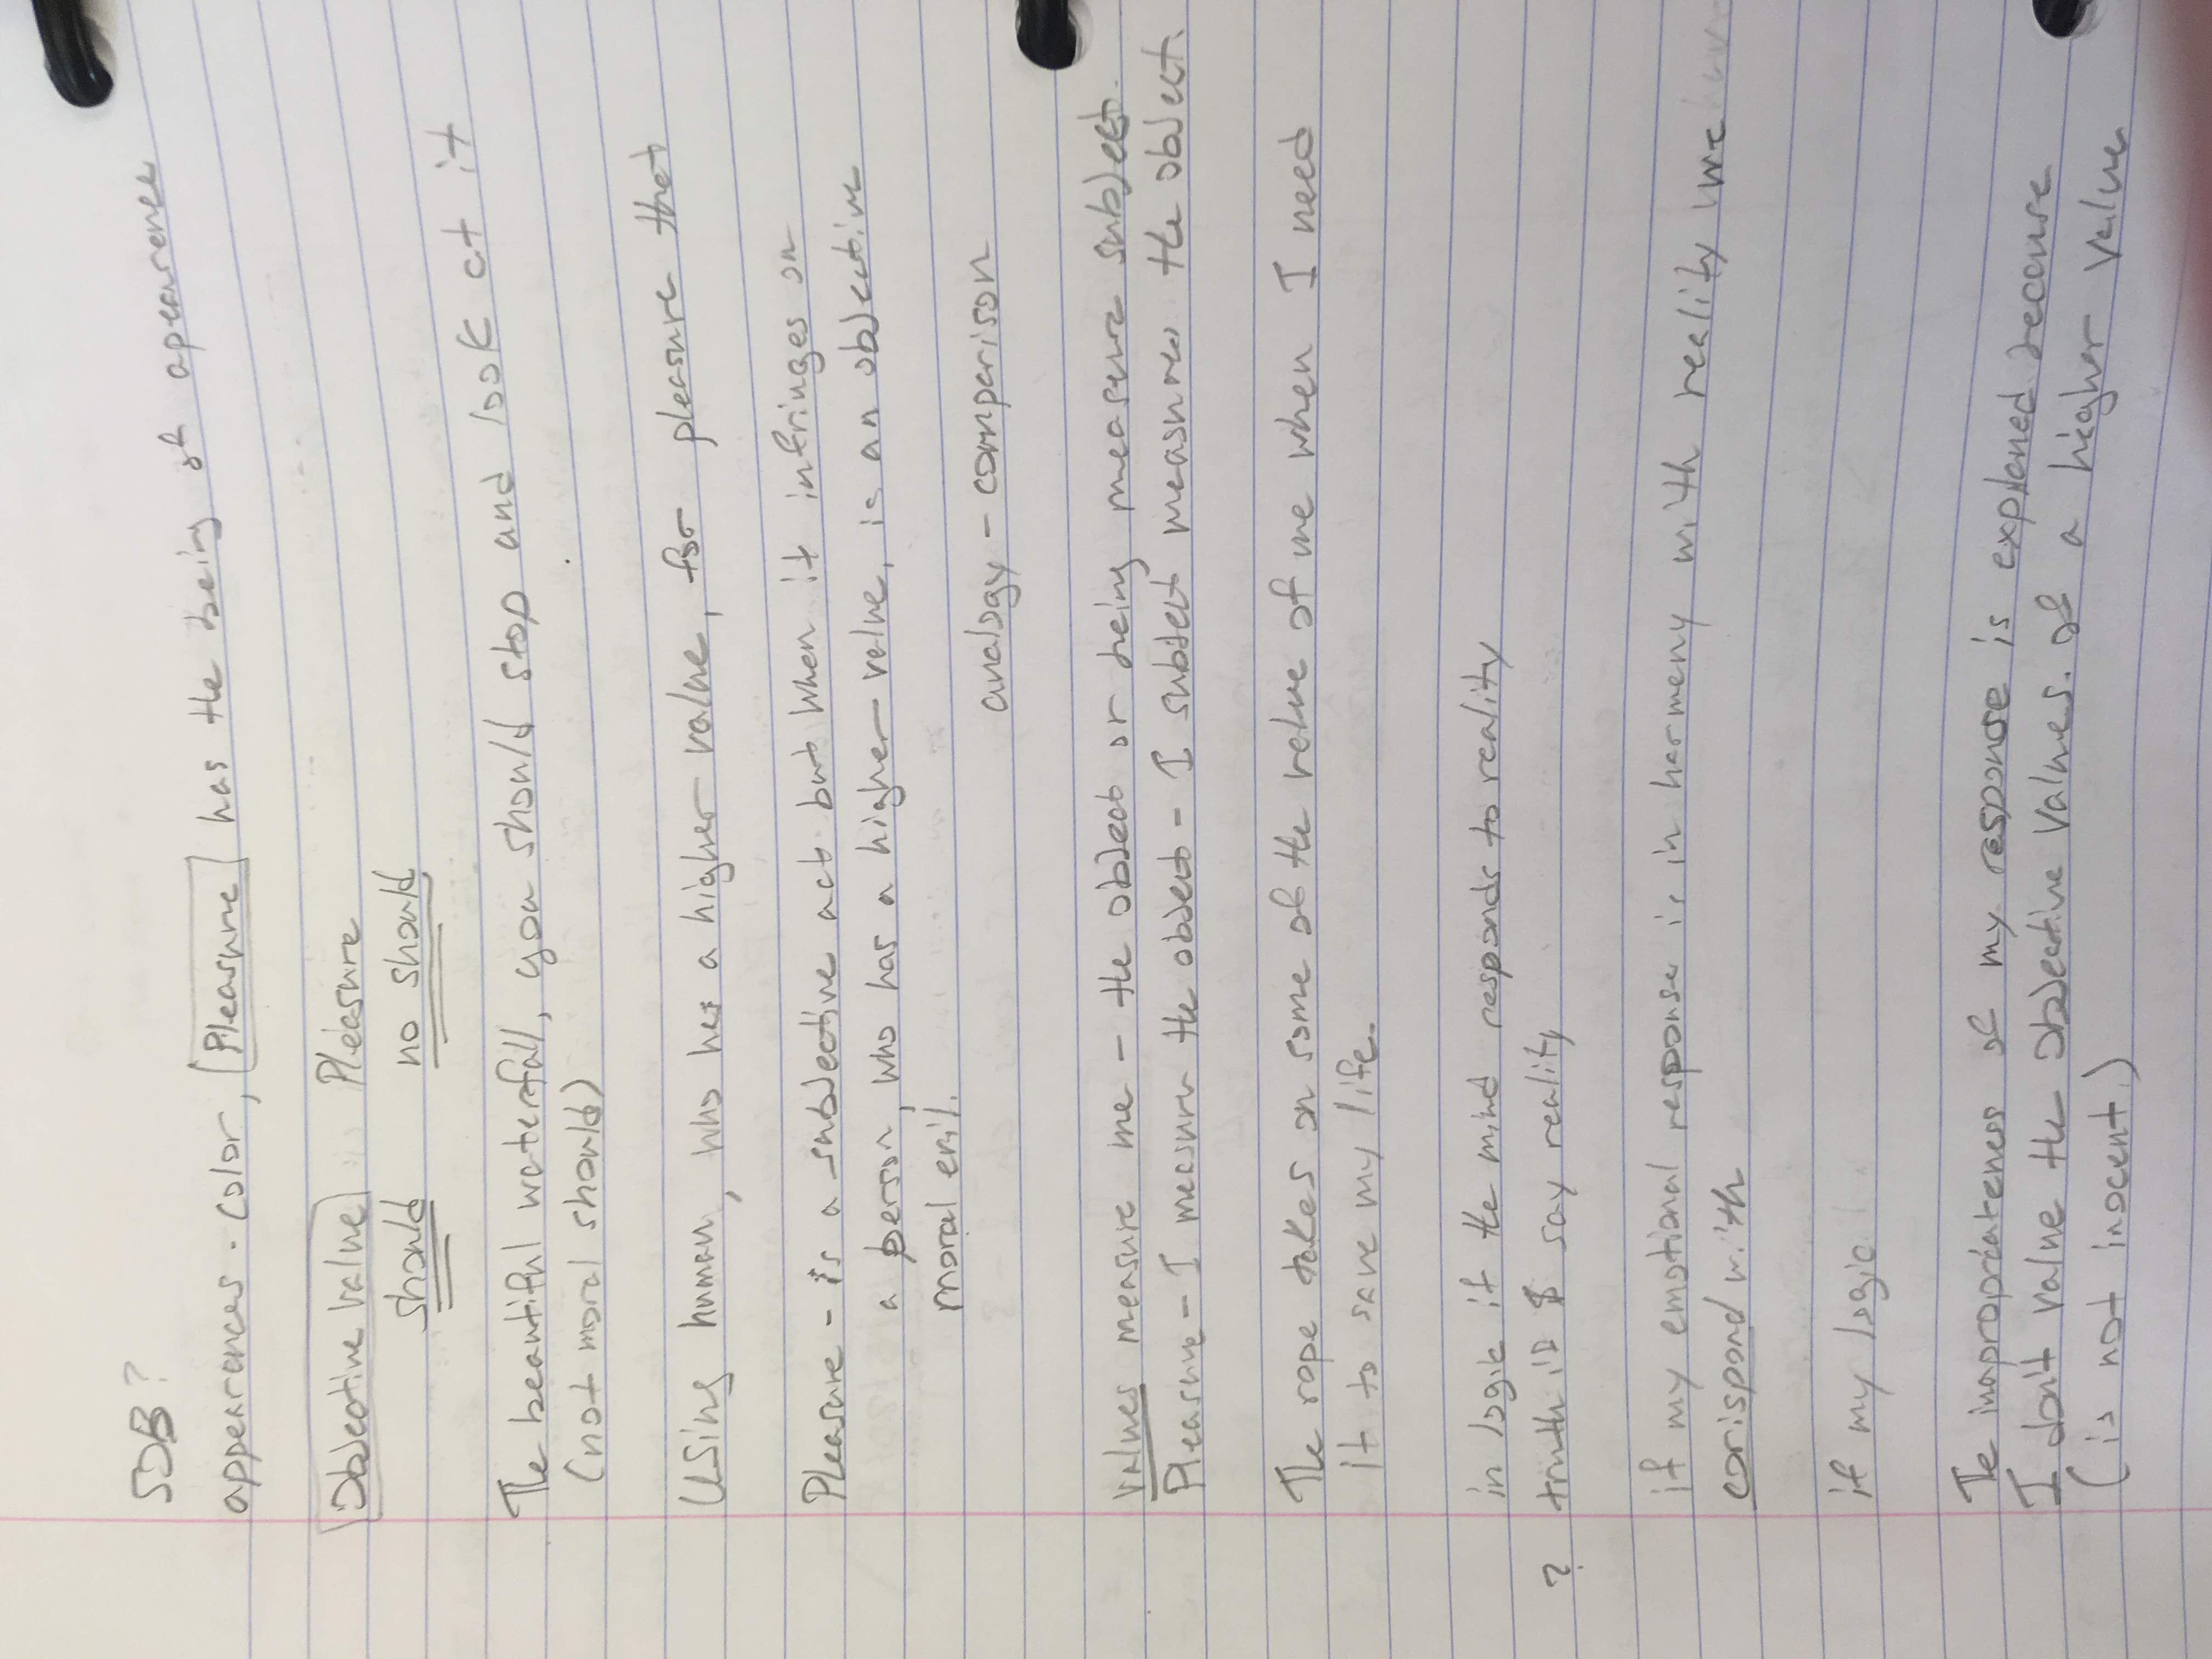 SDB?
apperences - color, Pleasure has the being of apearence
Objective value Pleasure
should no should
The beautiful waterfall, you should stop and look at it
(not moral should)
Using human, who has a higher value, for pleasure that
Pleasure - is a subjective act but when it infringes on
a person, who has a higher value, is an objective
moral evil.
analogy - comparison
Values measure me - the object or being measure subject.
Pleasure - I measure the object - I subject measures the object.
The rope takes on some of the value of me when I need
it to save my life.
in logic if the mind responds to reality
? truth if I say reality
if my emotional response is in harmeny with reality we have
corispond with
if my logic
The inapropriateness of my response is explened becouse
I don't value the objective values. of a higher value
(is not inocent.)